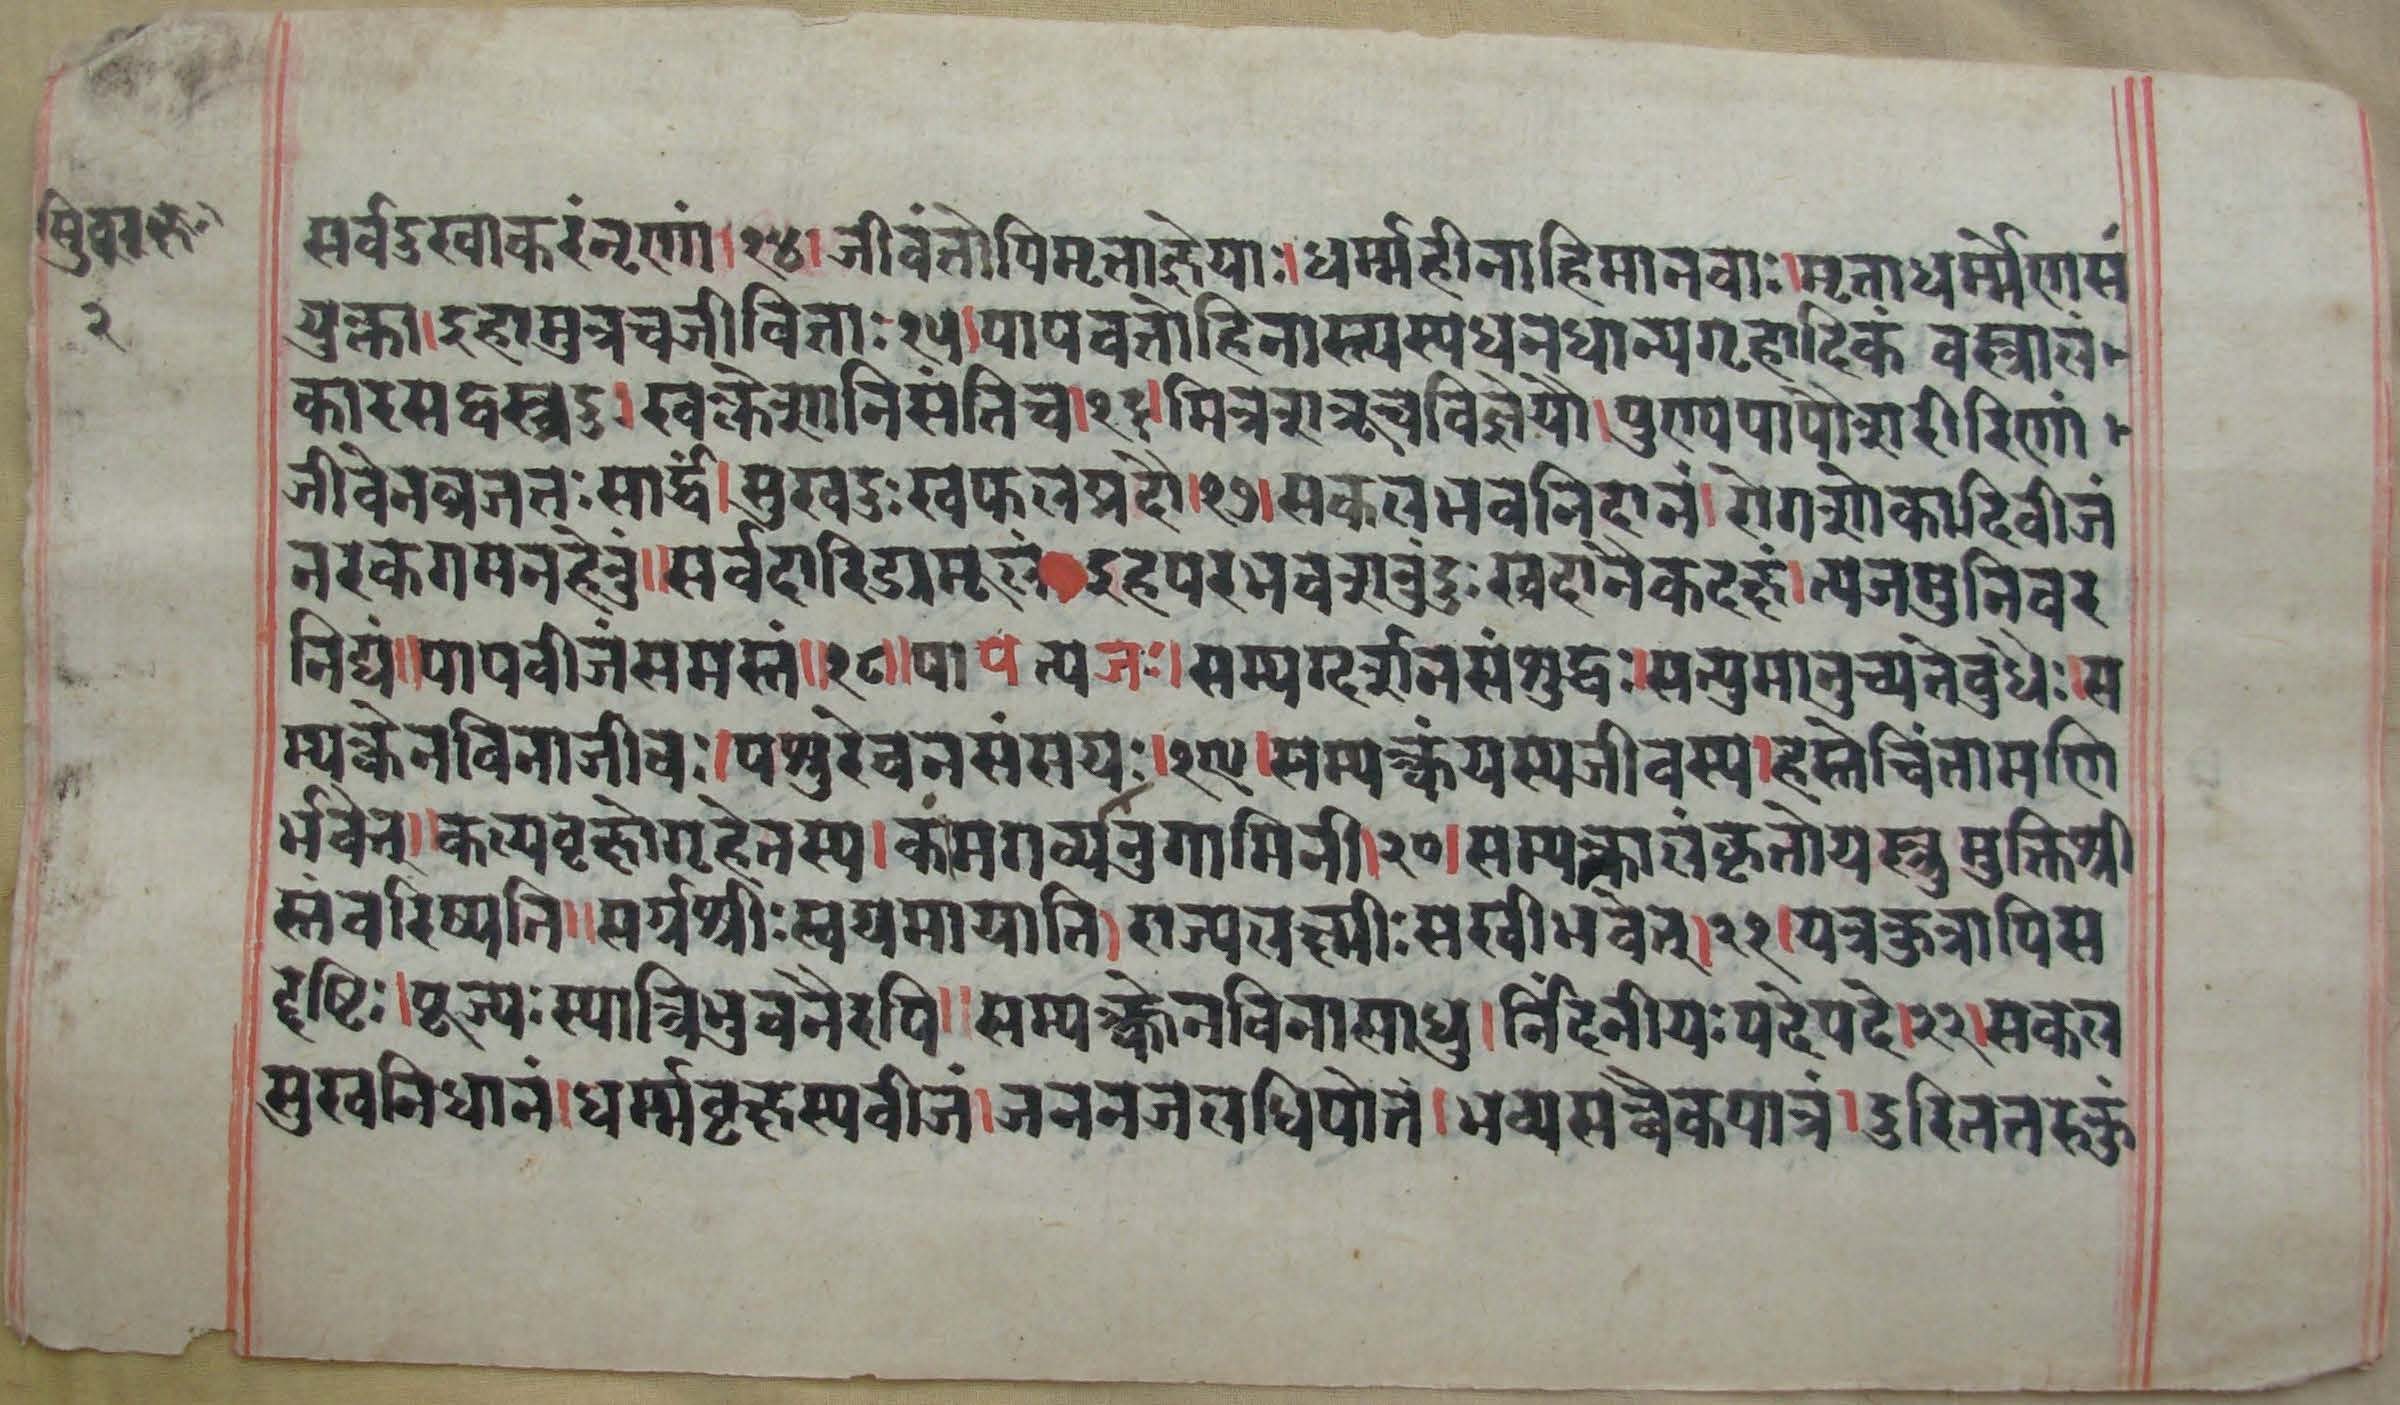 सर्वदुखाकरंनृणां।१४।जीवंतोपिमृताज्ञेयाः।धर्म्महीनाहिमानवाः।मृताधर्म्मेणसं
२
युक्ता।इहामुत्रचजीविताः१५।पापवतोहिनास्त्यस्यधनधान्यगृहादिकं वस्त्रालं
कारसद्वस्त्रदुः।खक्लेशानिसंतिच।१६।मित्रशत्रूचविज्ञेयौ।पुण्यपापौशरीरिणां
जीवेनव्रजतःसार्द्धं।सुखदुःखफलप्रदौ।१७।सकलभवनिदानं।रोगशोकादिवीजं
नरकगमनहेतुं॥सर्वदारिद्रामूलं इहपरभवशत्रुंदुःखदानैकदक्षं।त्यजमुनिवर
निद्यं॥पापवीजंसमस्तं॥१८॥पापत्यजः।सम्यग्दर्शनसंशुद्धः।सत्पुमानुच्यतेवुधैः।स
म्यक्त्वेनविनाजीवः।पशुरेवनसंसयः।१९।सम्यक्त्वंयस्यजीवस्य।हस्तेचिंतामणि
र्भवेत्॥कल्पवृक्षोगृहेतस्य।कामगर्व्यनुगामिनी।२०।सम्यक्त्वालंकृतोयस्तु मुक्तिश्री
स्तंवरिष्यति॥सर्ग्गश्रीःस्वयमायाति।राज्यलक्ष्मीःसखीभवेत्।२१।यत्रकुत्रापिस
दृष्टिः।पूज्यःस्यात्रिभुवनैरपि॥सम्यक्त्वेनविनासाधु।निंदनीयःपदेपदे।२२।सकल
सुखनिधानं।धर्म्मवृक्षस्यवीजं।जननजलधिपोतं।भव्यसत्वैकपात्रं।दुरिततरुकु